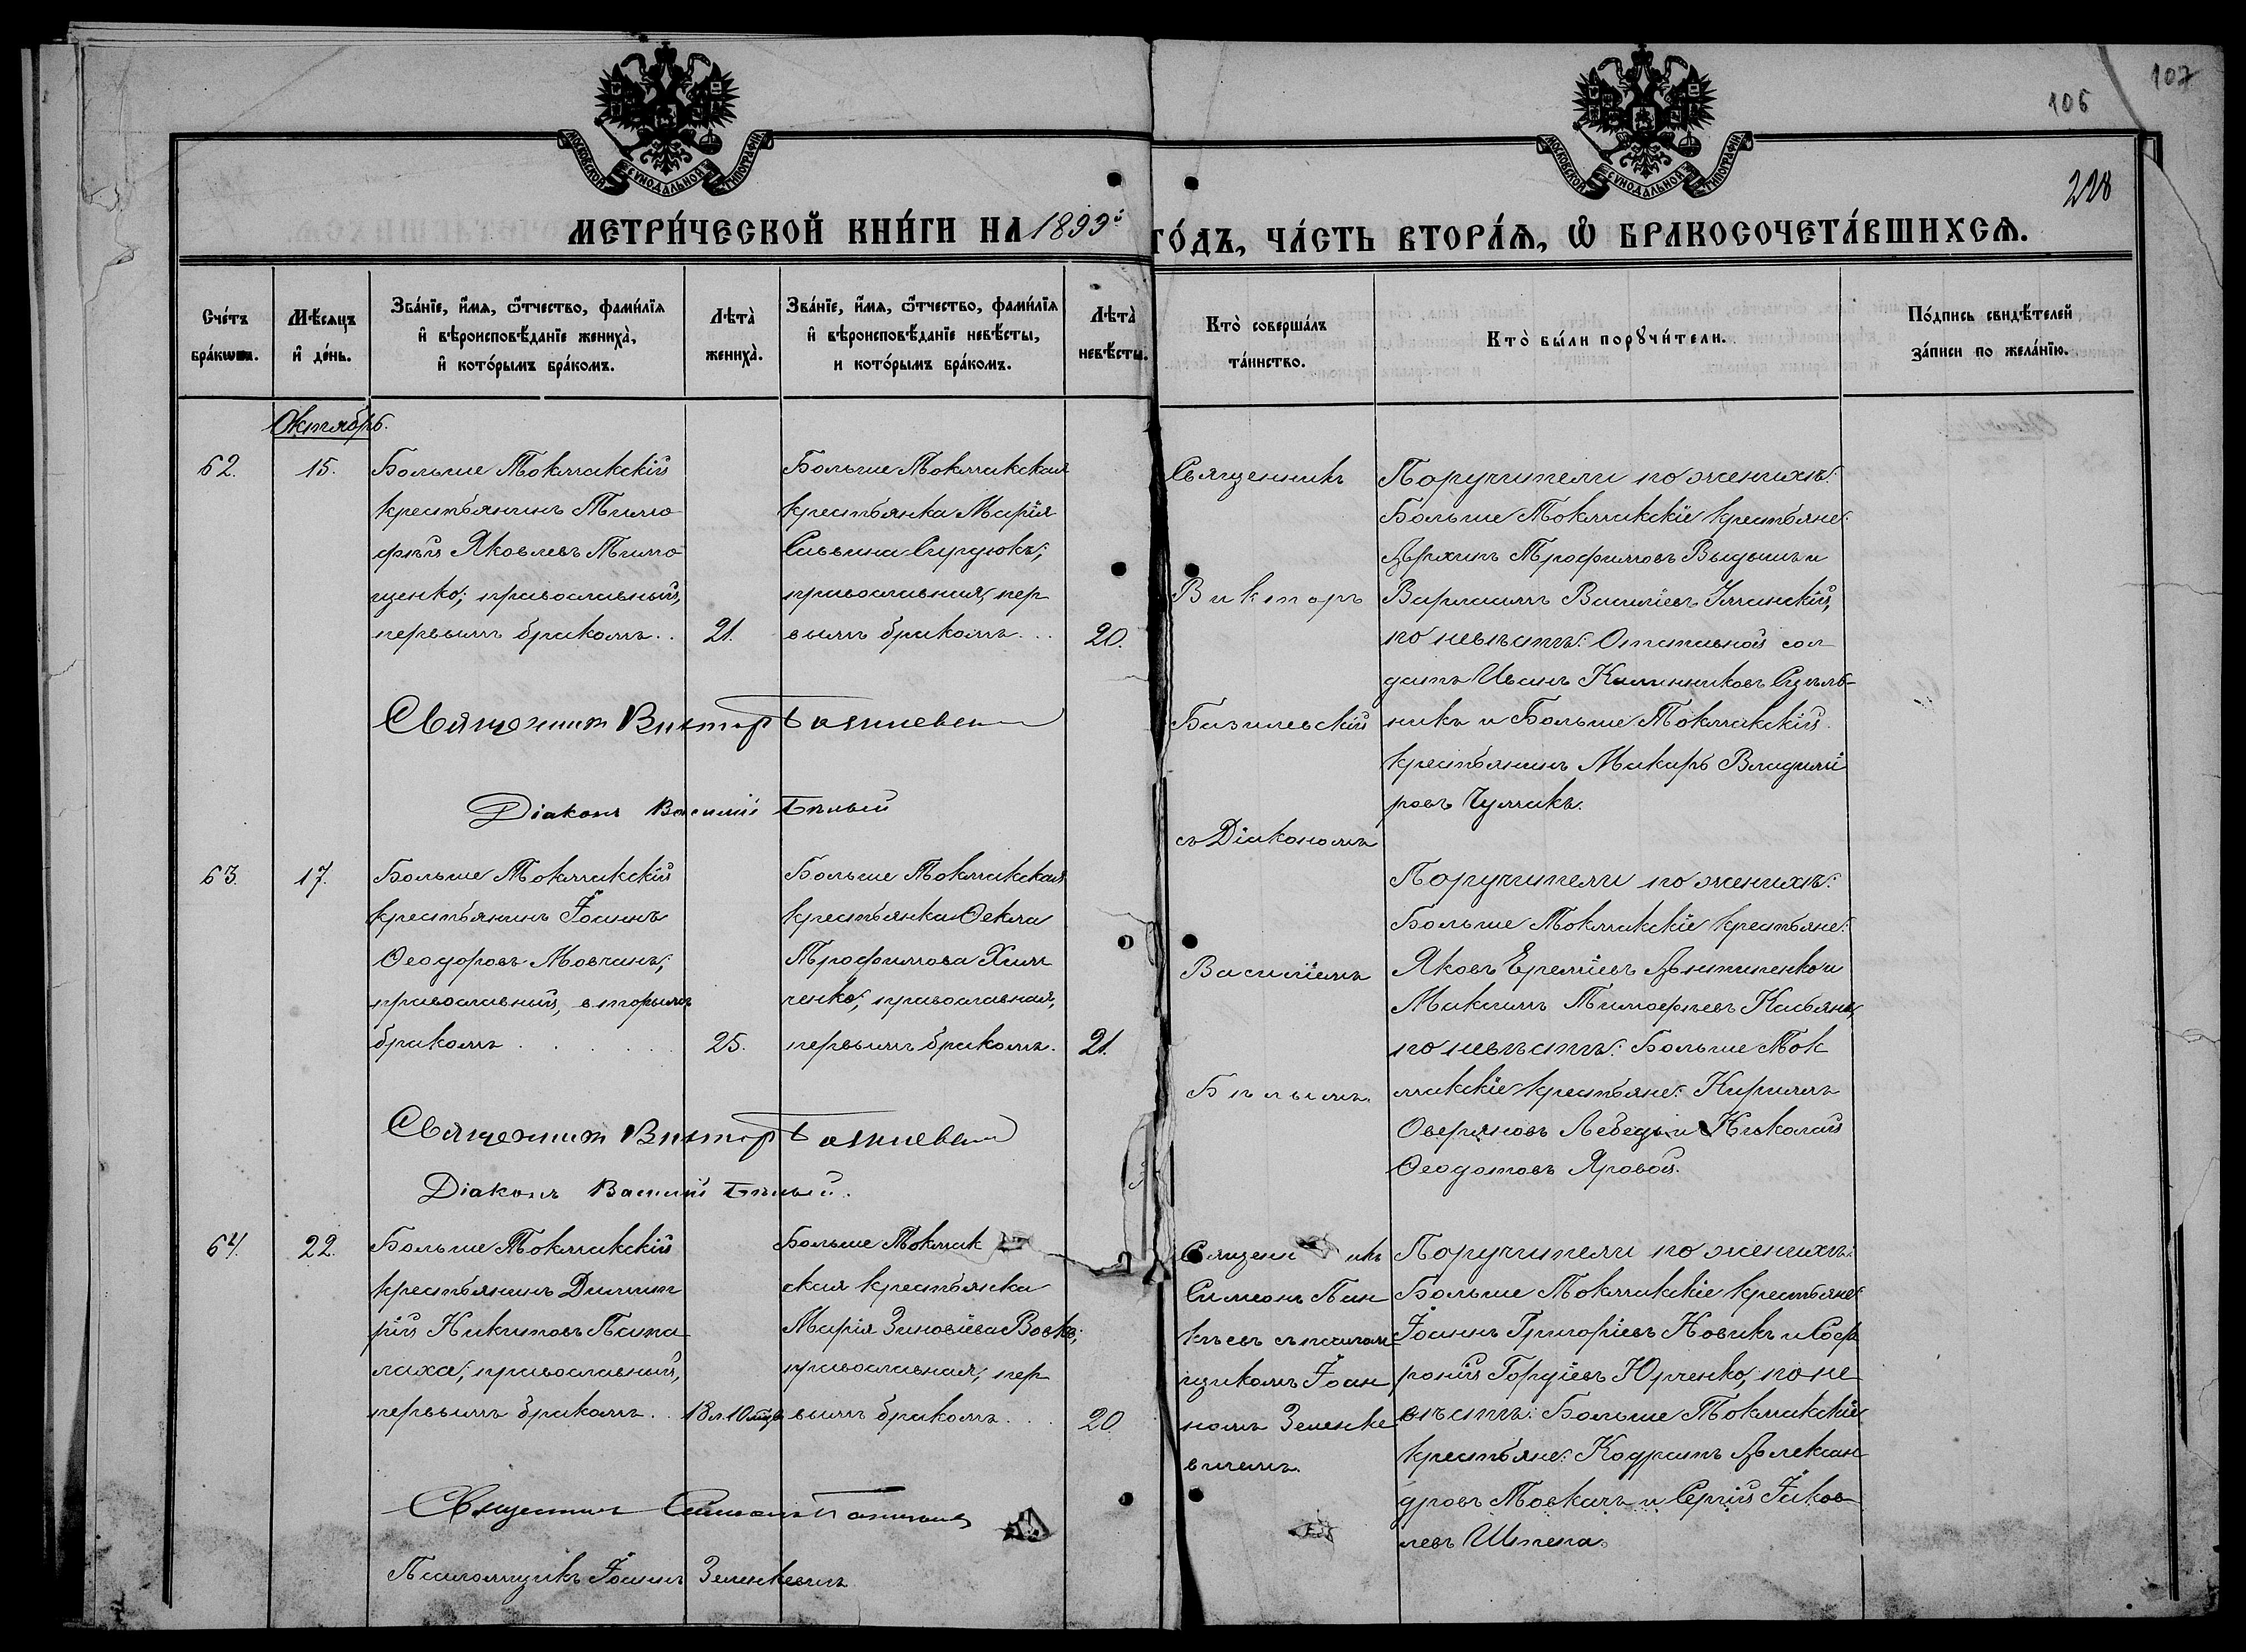 107
106
228
МОСКОВСКОЙ СѴНОДАЛЬНОЙ ТИПОГРАФІИ
МОСКОВСКОЙ СѴНОДАЛЬНОЙ ТИПОГРАФІИ
МЕТРИ́ЧЕСКОЙ КНИ́ГИ НА 1899й
ГО́ДЪ, ЧА́СТЬ ВТОРА́Я, Ѡ БРАКОСОЧЕТА́ВШИХСЯ.
Сче́тъ
бра́кѡвъ.
Мѣсяцъ
и де́нь.
Зва́нїе, и́мя, ѿчество, фами́лїя
и вѣроисповѣ́данїе жениха̀,
и кото́рымъ бра́комъ.
Лѣта̀
жениха̀.
Зва́нїе, и́мя, ѿчество, фами́лїя
и вѣроисповѣ́данїе невѣ́сты,
и кото́рымъ бра́комъ.
Лѣта̀
невѣ́сты.
Кто̀ соверша́лъ
та́инство.
Кто̀ бы́ли порꙋчи́тели.
По́дпись свидѣ́телей
за́писи по жела́нїю.
Октябрь.
62.
15.
Больше Токмакскій
крестьянинъ Тимо
фѣй Яковлевъ Тимо
щенко; православный,
первымъ бракомъ..
21.
Больше Токмакская
крестьянка Марія
Саввина Сердюкъ;
православная, пер
вымъ бракомъ...
20.
Священникъ
Викторъ
Базилевскій
съ Діакономъ
Василіемъ
Бѣлымъ.
Поручители по женихѣ:
Больше Токмакскіе крестьяне:
Архипъ Трофимовъ Выдышъ и
Варлаамъ Василіевъ Уманскій,
по невѣстѣ: Отставной сол
датъ Иванъ Калинниковъ Сидѣль-
никъ и Больше Токмакскій
крестьянинъ Макаръ Владимі
ровъ Чумакъ.
Священникъ Викторъ Базилевскій
Діаконъ Василій Бѣлый
63.
17.
Больше Токмакскій
крестьянинъ Іоаннъ
Ѳеодоровъ Мовчанъ;
православный, вторымъ
бракомъ
25.
Больше Токмакская
крестьянка Ѳекла
Трофимова Хим
ченко; православная,
первымъ бракомъ.
21.
Поручители по женихѣ:
Больше Токмакскіе крестьяне:
Яковъ Ереміевъ Антипенко и
Максимъ Тимофѣевъ Касьянъ,
по невѣстѣ: Больше Ток
макскіе крестьяне: Кириллъ
Оверяновъ Лебедь и Николай
Ѳеодотовъ Яровой.
Священникъ Викторъ Базилевскій
Діаконъ Василій Бѣлый.
64.
22.
Больше Токмакскій
крестьянинъ Димит
рій Никитовъ Пата
лаха; православный,
первымъ бракомъ..
18 л. 10 мцв
Больше Токмак
ская крестьянка
Марія Зиновіева Вовкъ;
православная, пер
вымъ бракомъ...
20
Священникъ
Симеонъ Пан
кѣевъ съ псалом
щикомъ Іоан
номъ Зеленке
вичемъ.
Поручители по женихѣ:
Больше Токмакскіе крестьяне:
Іоаннъ Григоріевъ Новикъ и Соф
роній Гордіевъ Юрченко, по не
вѣстѣ: Больше Токмакскіе
крестьяне: Кодратъ Алексан
дровъ Мовчанъ и Сергій Іаков
левъ Шпепа.
Священникъ Симеонъ Панкѣевъ
Псаломщикъ Іоаннъ Зеленкевичъ